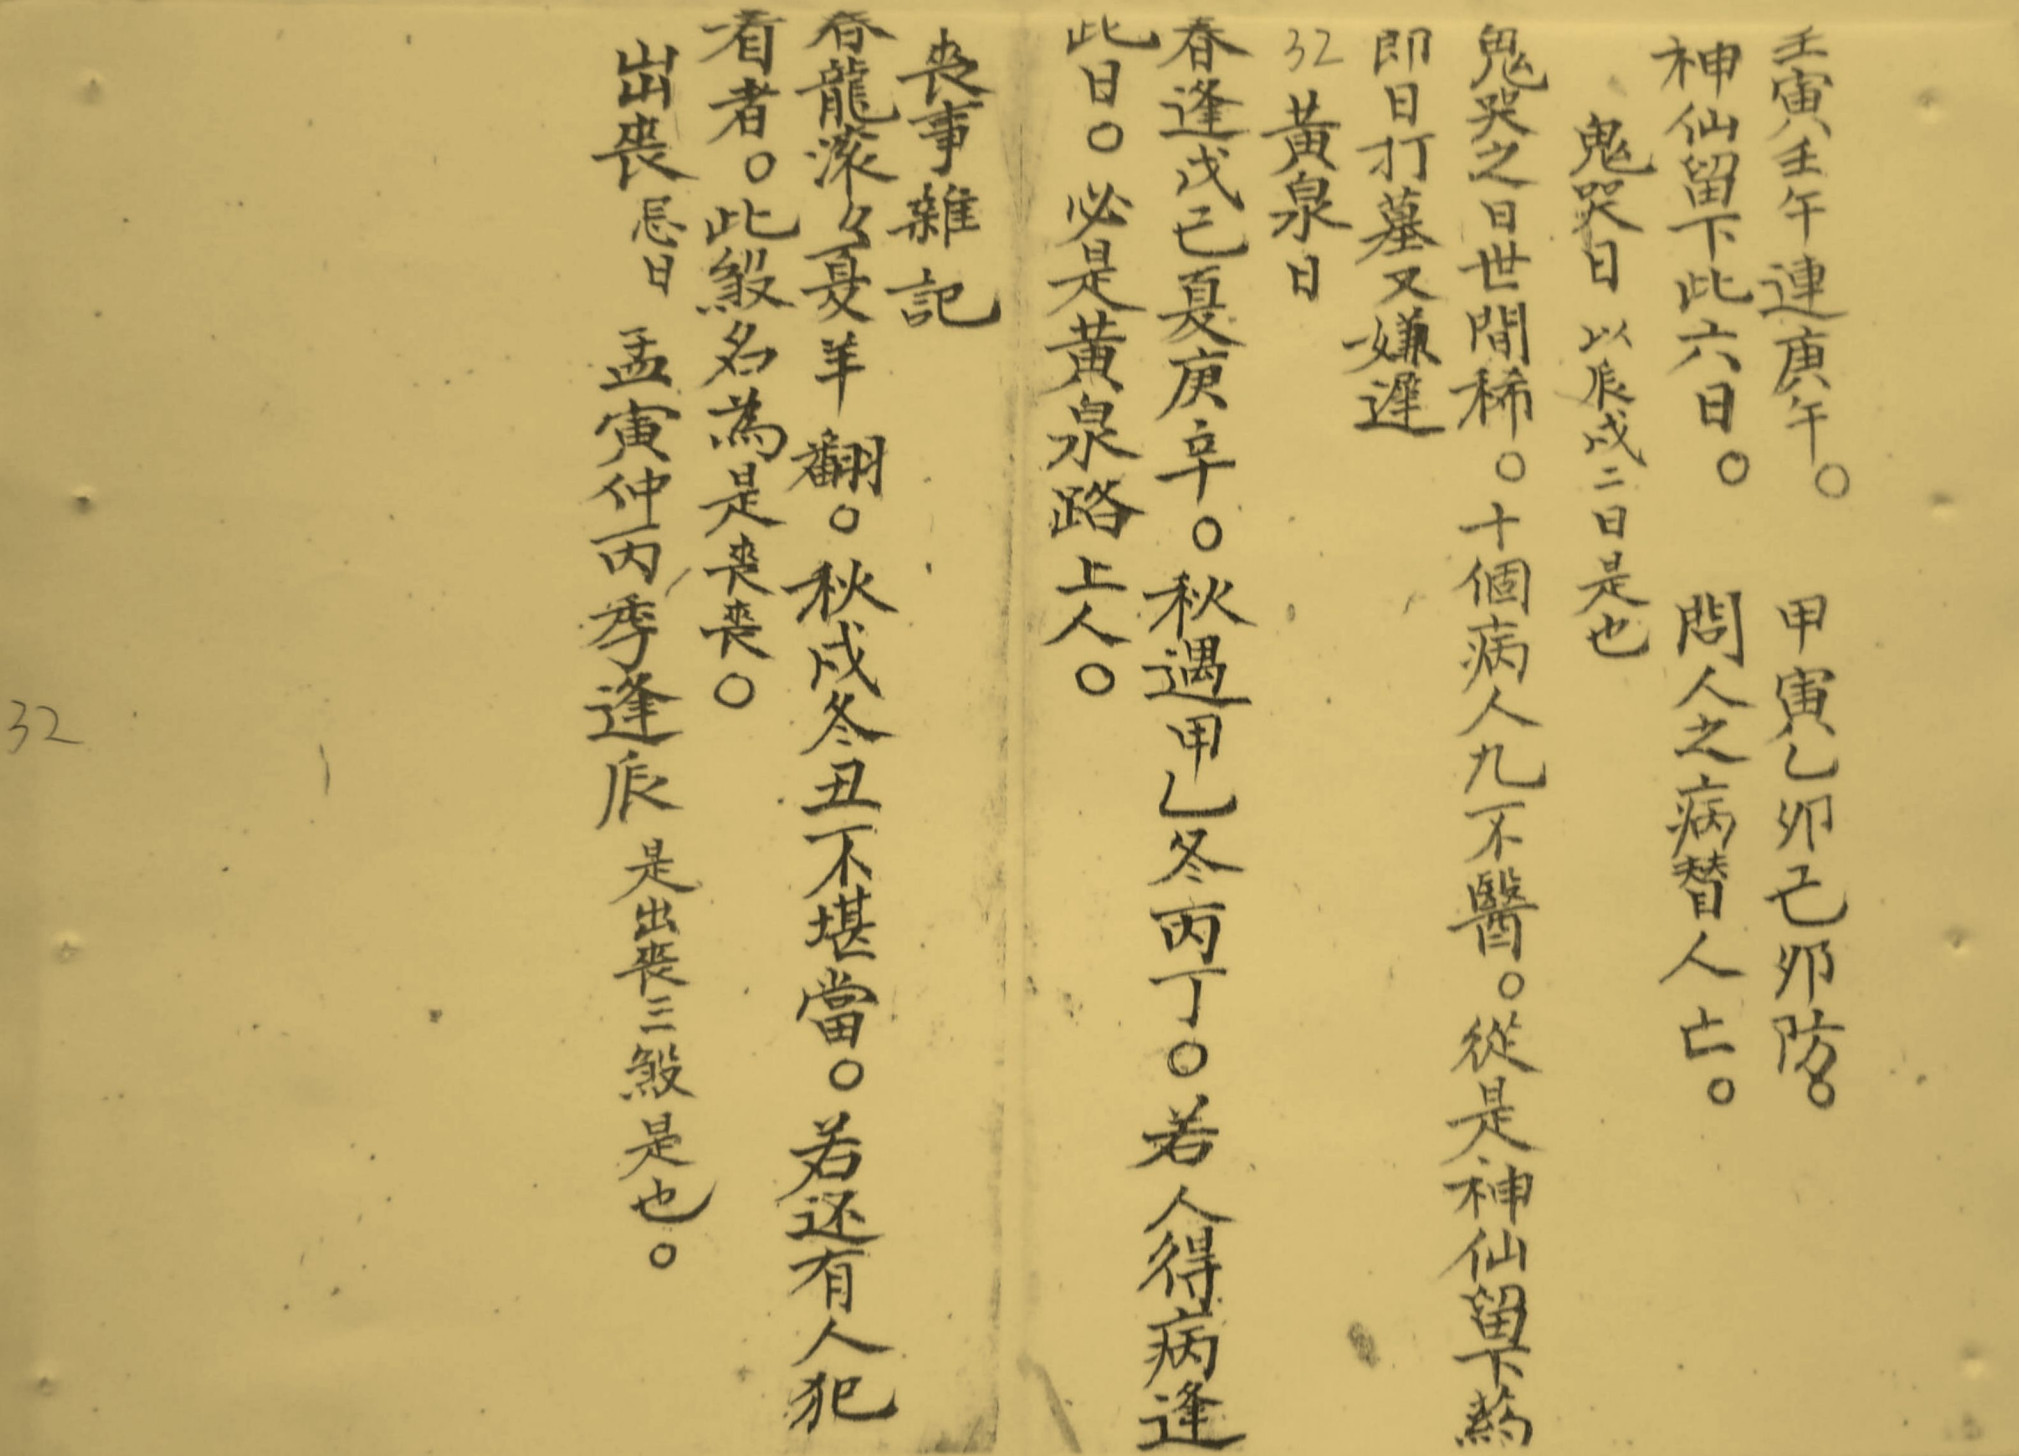 壬寅壬午連庚午。 甲寅乙卯己卯防。
神仙留下此六日。 問人之病替人亡。
鬼哭日 以辰戌二日是也
鬼哭之日世間稀。十個病人九不醫。從是神仙留下藥
即日打墓又嫌遲
32 黃泉日
春逢戊己夏庚辛。秋遇甲乙冬丙丁。若人得病逢
此日。必是黃泉路上人。
喪事雜記
春龍滾々夏羊翻。秋戌冬丑不堪當。若还有人犯
看者。此煞名為是喪喪。
出喪忌日 孟寅仲丙季逢辰 是出喪三煞是也。
32